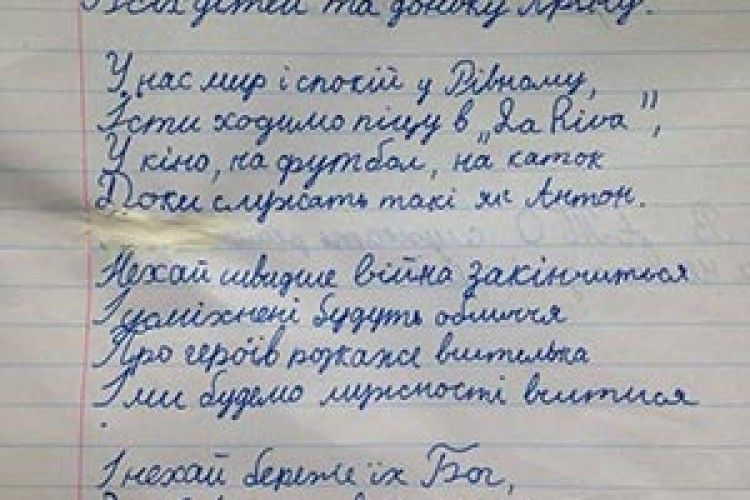 Всіх дітей та доньку Арину.
У нас мир і спокій у Рівному,
Їсти ходимо піцу в „La Riva",
У кіно, на футбол, на каток
Доки служать такі як Антон.
Нехай швидше війна закінчиться
І усміхнені будуть обличчя
Про героїв розкаже вчителька
І ми будемо мужності вчитися
І нехай береже їх Бог,